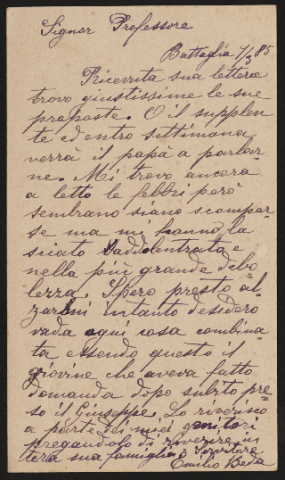 Signor Professore
Battaglia 1/3 85
Ricevuta sua lettera
trovo giustissime le sue
proposte. O il supplen
te od entro settimana
verrà il papà a parlar
ne. Mi trovo ancora
a letto le febbri però
sembrano siano scompar
se ma mi hanno la
sciato addolentrato e
nella più grande debo
lezza. Spero presto al
zarmi intanto desidero
vada ogni cosa combina
ta essendo questo il
giovine che aveva fatto
domanda dopo subito pre
so il Giuseppe. Lo riverisco
a parte dei miei genitori
pregandolo di riverire in
tera sua famiglia Servitore
Emilio